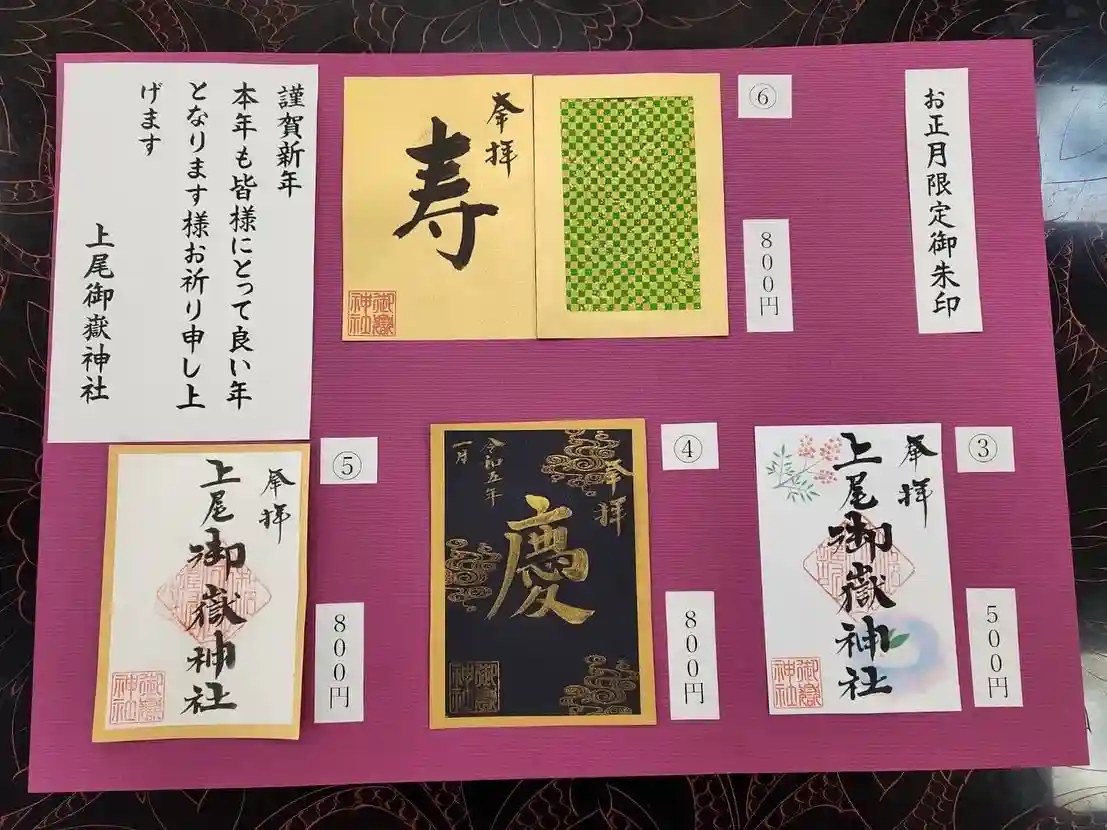 お正月限定御朱印
⑥
800円
奉拝
寿
御嶽
神社
謹賀新年
本年も皆様にとって良い年
となります様お祈り申し上
げます
上尾御嶽神社
③
500円
奉拝
上尾御嶽神社
御嶽
神社
④
800円
奉拝
慶
令和五年
一月
御嶽
神社
⑤
800円
奉拝
上尾御嶽神社
御嶽
神社